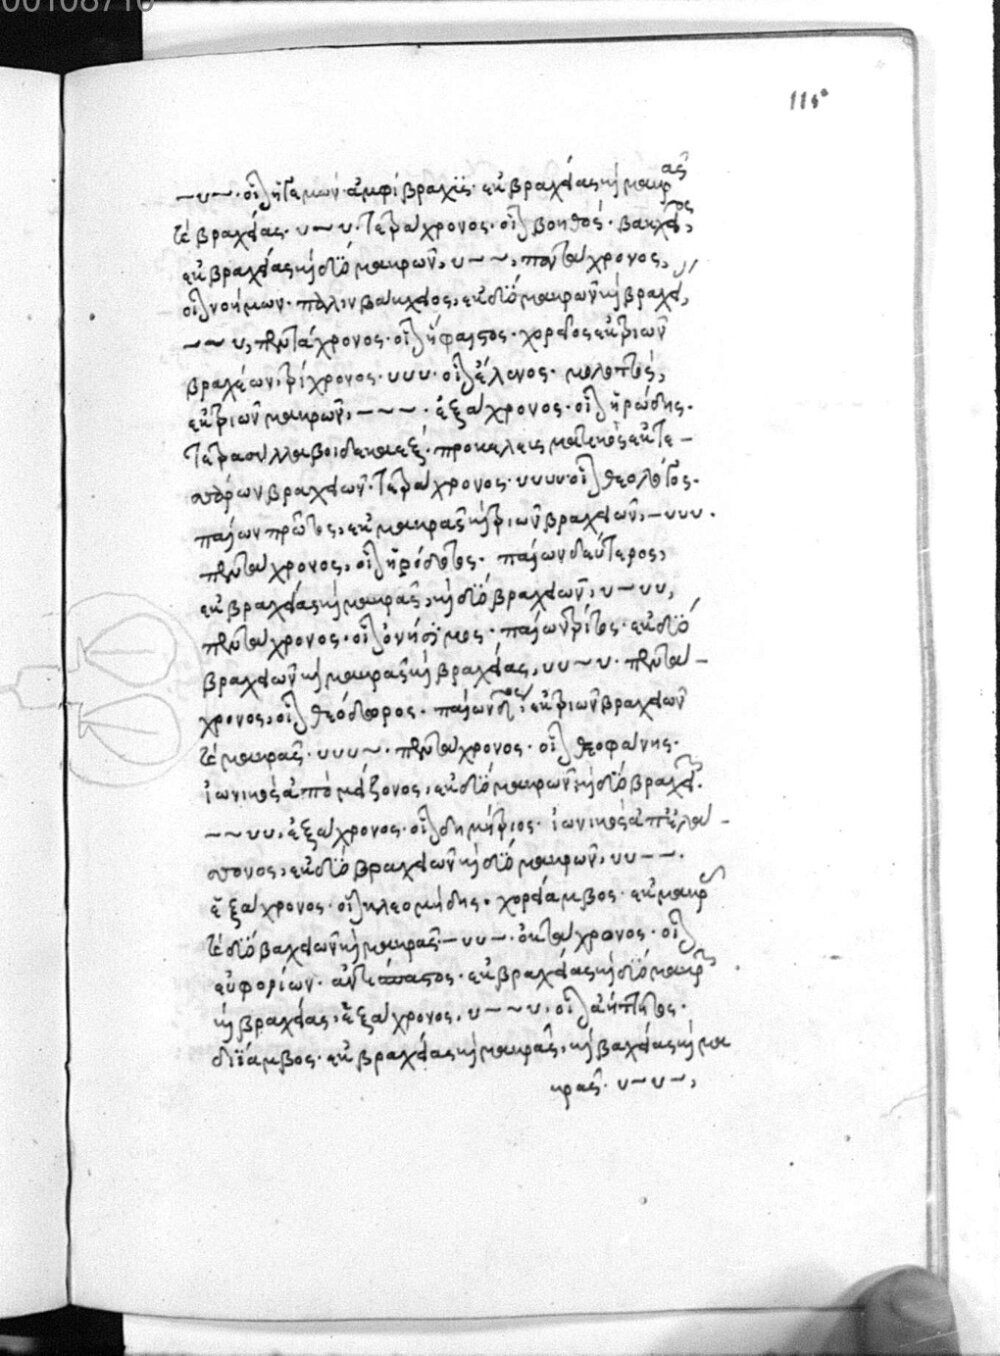 00108716
118
– υ –· οἷον ἡγεμών· ἀμφίβραχυς· ἐκ βραχείας καὶ μακρᾶς
καὶ βραχείας· υ – υ· τετράχρονος· οἷον βοηθός· βακχεῖος,
ἐκ βραχείας καὶ δύο μακρῶν, υ – –, πεντάχρονος,
οἷον νοήμων· παλιμβάκχειος, ἐκ δύο μακρῶν καὶ βραχείας,
– – υ, πεντάχρονος· οἷον ἥφαιστος· χορεῖος ἐκ τριῶν
βραχέων, τρίχρονος· υυυ· οἷον ἕλενος· μολοττός,
ἐκ τριῶν μακρῶν, – – –· ἑξάχρονος· οἷον ἡρώδης·
τετρασύλλαβοι δεκαέξ· προκελευσματικὸς ἐκ τε –
σσάρων βραχειῶν· τετράχρονος· υυυυ· οἷον θεολόγος·
παίων πρῶτος, ἐκ μακρᾶς καὶ τριῶν βραχειῶν, – υυυ·
πεντάχρονος, οἷον ἡρόδοτος· παίων δεύτερος,
ἐκ βραχείας καὶ μακρᾶς, καὶ δύο βραχειῶν, υ – υυ,
πεντάχρονος· οἷον ὀνήσιμος· παίων τρίτος· ἐκ δύο
βραχειῶν καὶ μακρᾶς καὶ βραχείας, υυ – υ· πεντά –
χρονος, οἷον θεόδωρος· παίων δος, ἐκ τριῶν βραχειῶν
καὶ μακρᾶς· υυυ –· πεντάχρονος· οἷον θεοφάνης·
ἰωνικὸς ἀπὸ μείζονος, ἐκ δύο μακρῶν καὶ δύο βραχειῶν·
– – υυ, ἑξάχρονος· οἷον δημήτριος· ἰωνικὸς ἀπ' ἐλά –
σσονος, ἐκ δύο βραχειῶν καὶ δύο μακρῶν, υυ – –·
ἑξάχρονος· οἷον κλεομήδης· χορίαμβος· ἐκ μακρᾶς
καὶ δύο βαχειῶν καὶ μακρᾶς· – υυ –· ὀκτάχρονος· οἷον
εὐφορίων· ἀντίσπαστος· ἐκ βραχείας καὶ δύο μακρῶν
καὶ βραχείας, ἑξάχρονος, υ – – υ, οἷον ἀήττητος·
διΐαμβος· ἐκ βραχείας καὶ μακρᾶς, καὶ βαχείας καὶ μα
κρᾶς· υ – υ –,